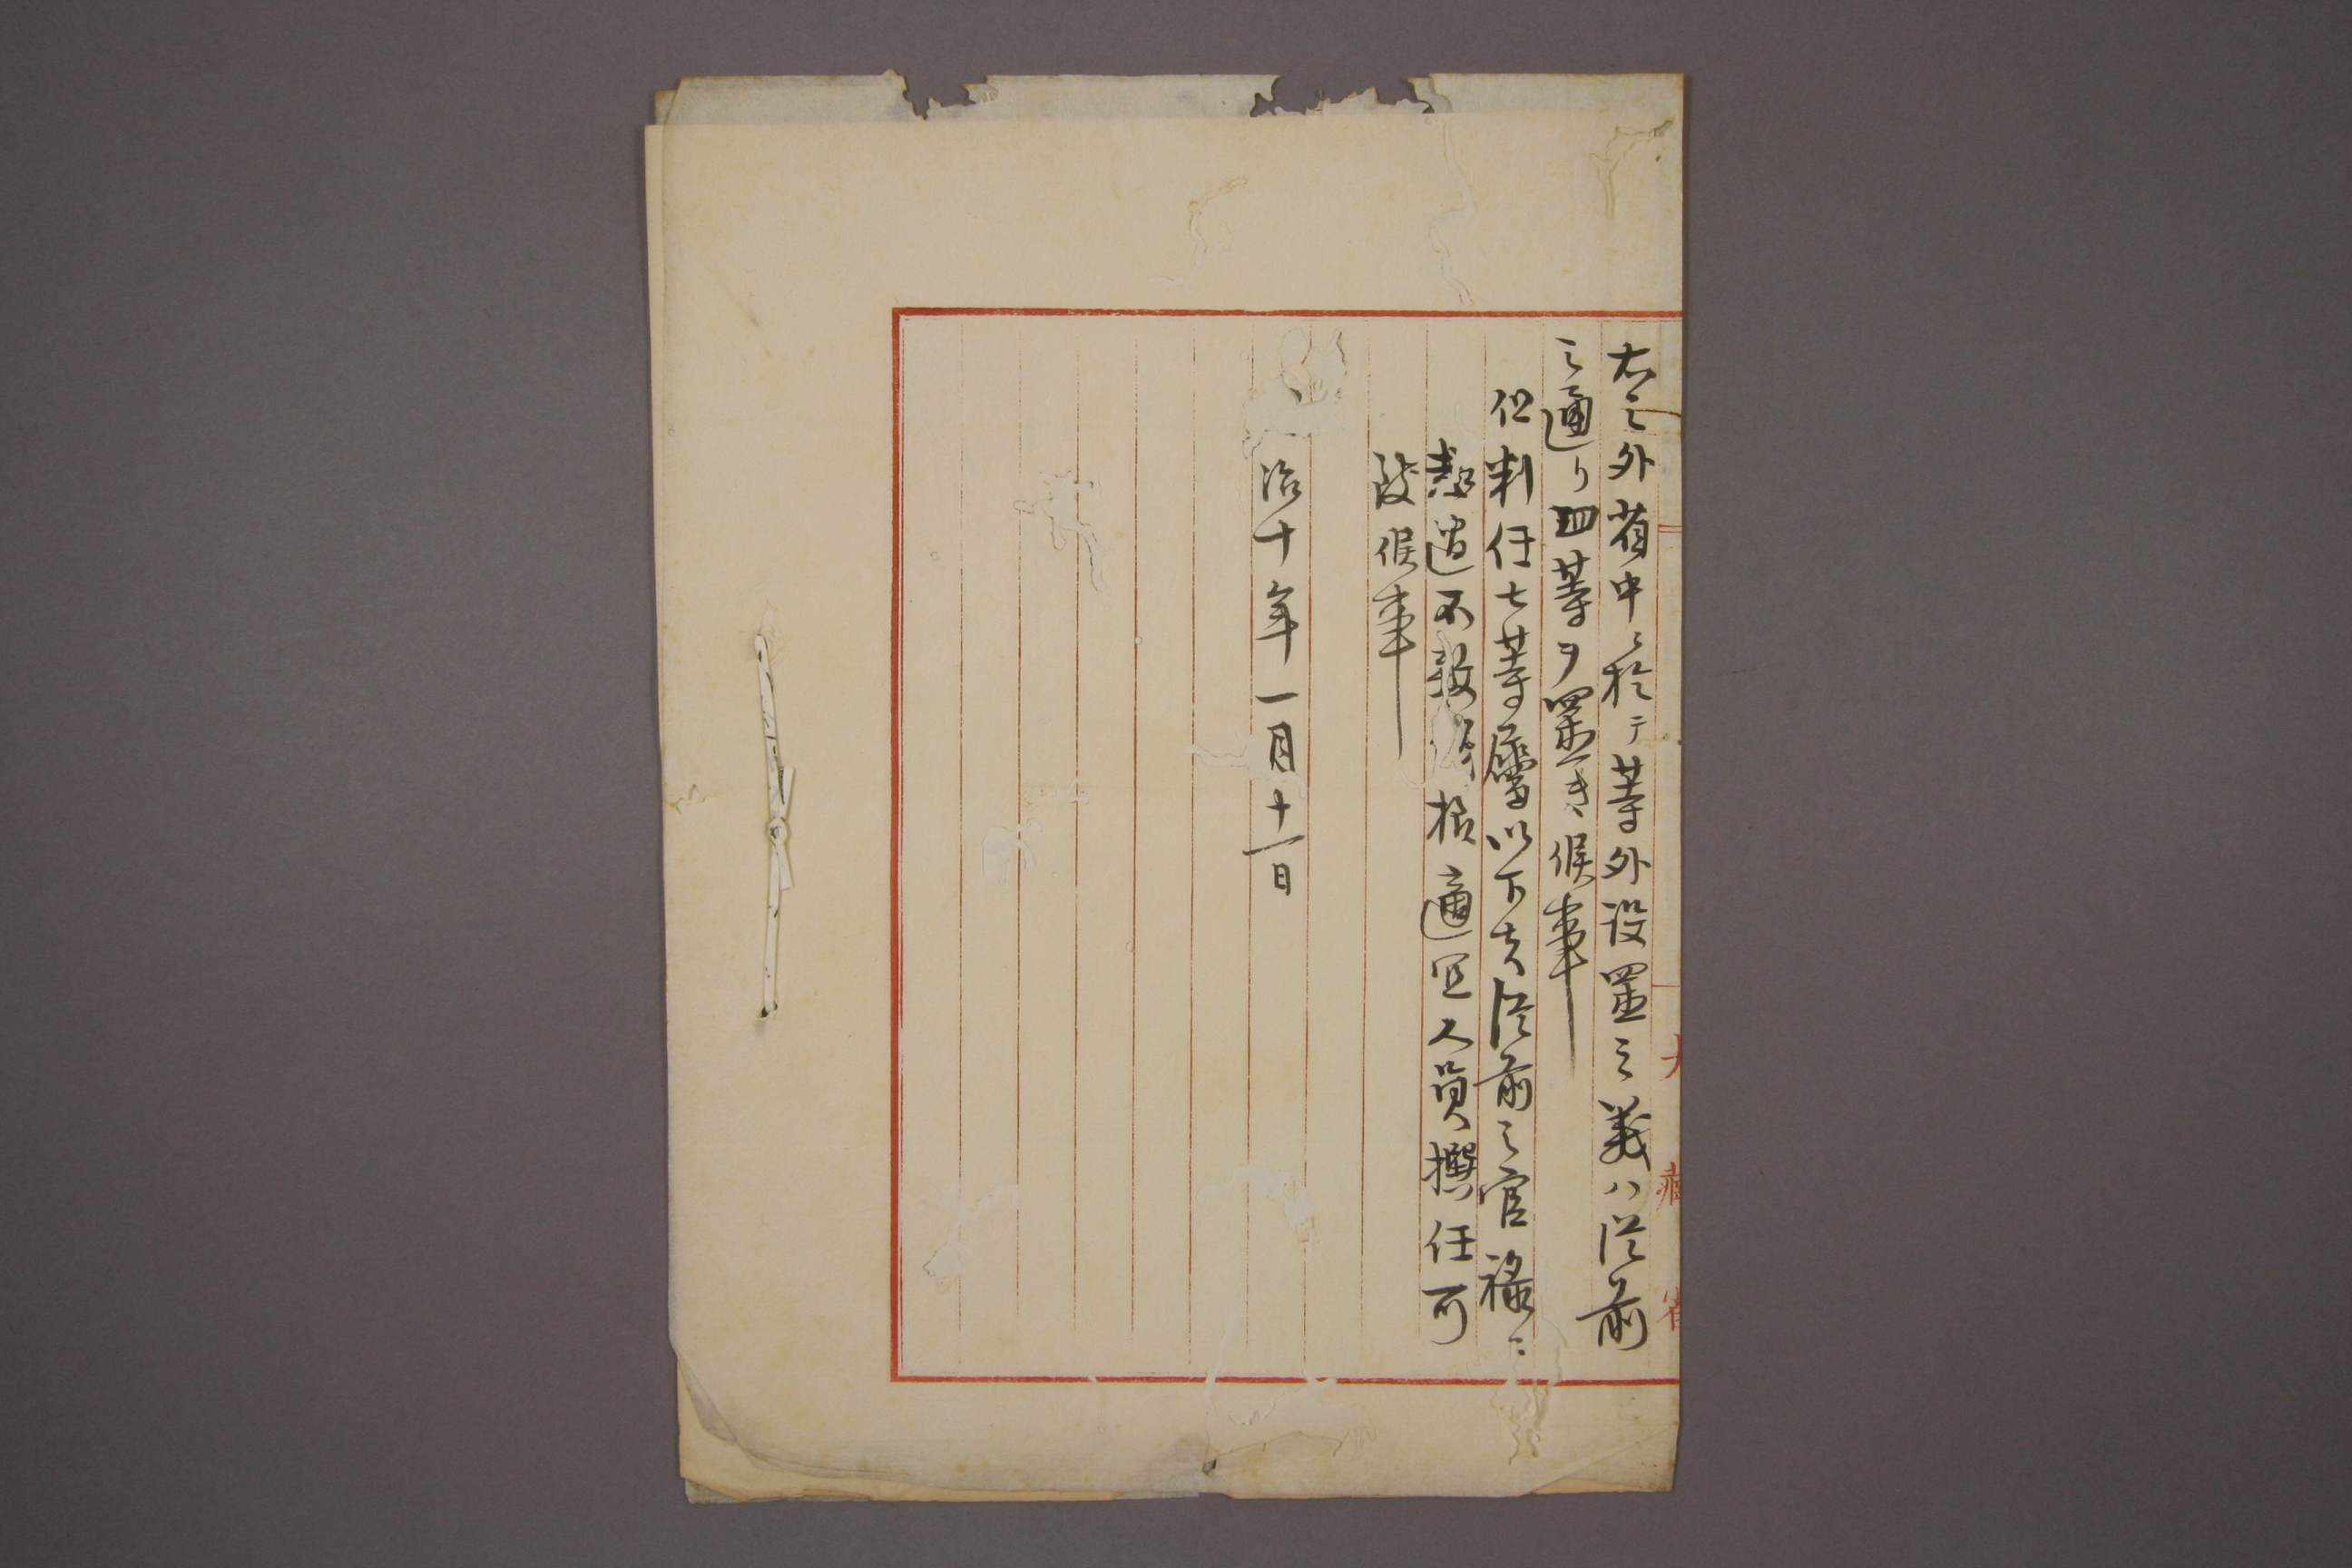 右之外省中ニ於テ等外設置之義ハ従前
之通リ四等ヲ置き候事
但判任七等属以下共従前之官禄ニ
懸適不致様適宜人員撰任可
致候事
治十年一月十一日
大藏省